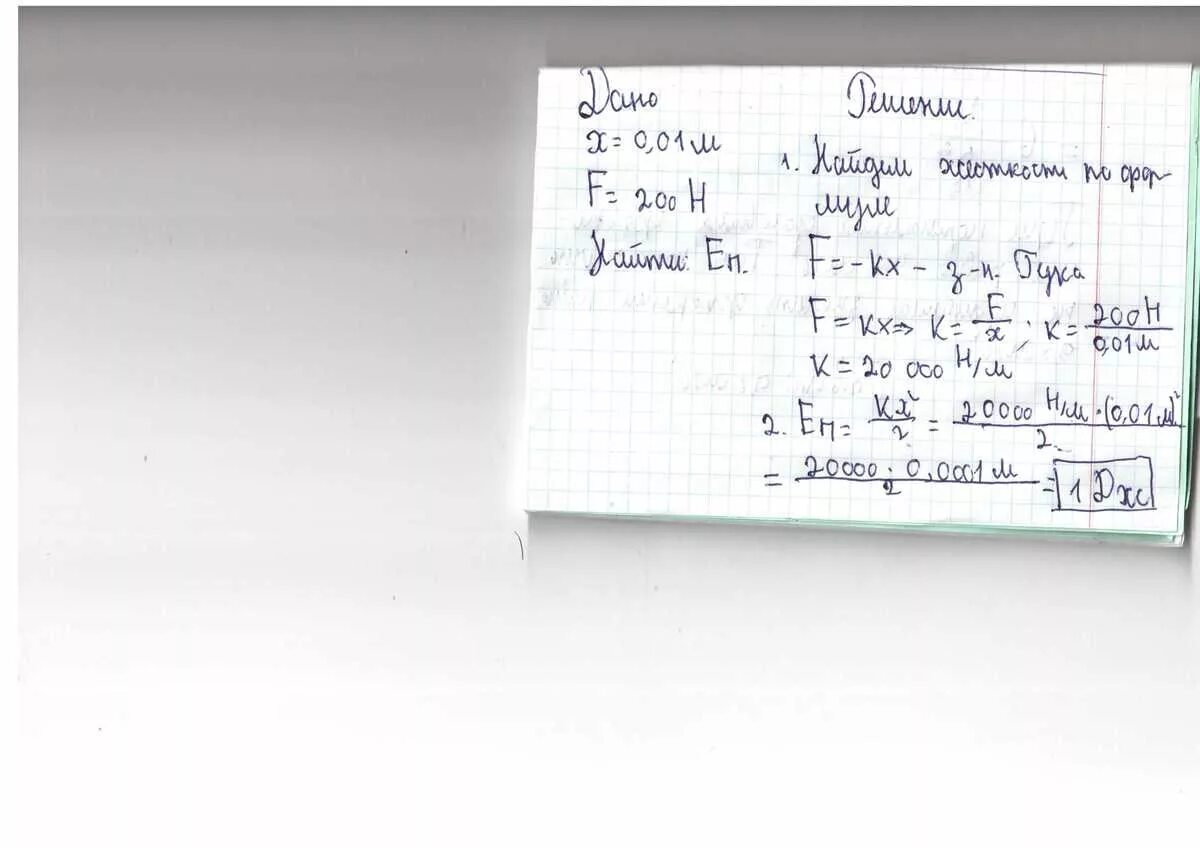 Дано
x = 0,01 м
F = 200 Н
Найти: Eп.
Решение.
1. Найдем жесткости по фор-
муле
F = -кx - з-н. Гука
F = кx => к = F/x ; к = 200Н/0,01м
к = 20 000 Н/м
2. Eп = кx²/2 = 20000 Н/м · (0,01 м)²/2.
= 20000 · 0,0001 м/2 = 1 Дж